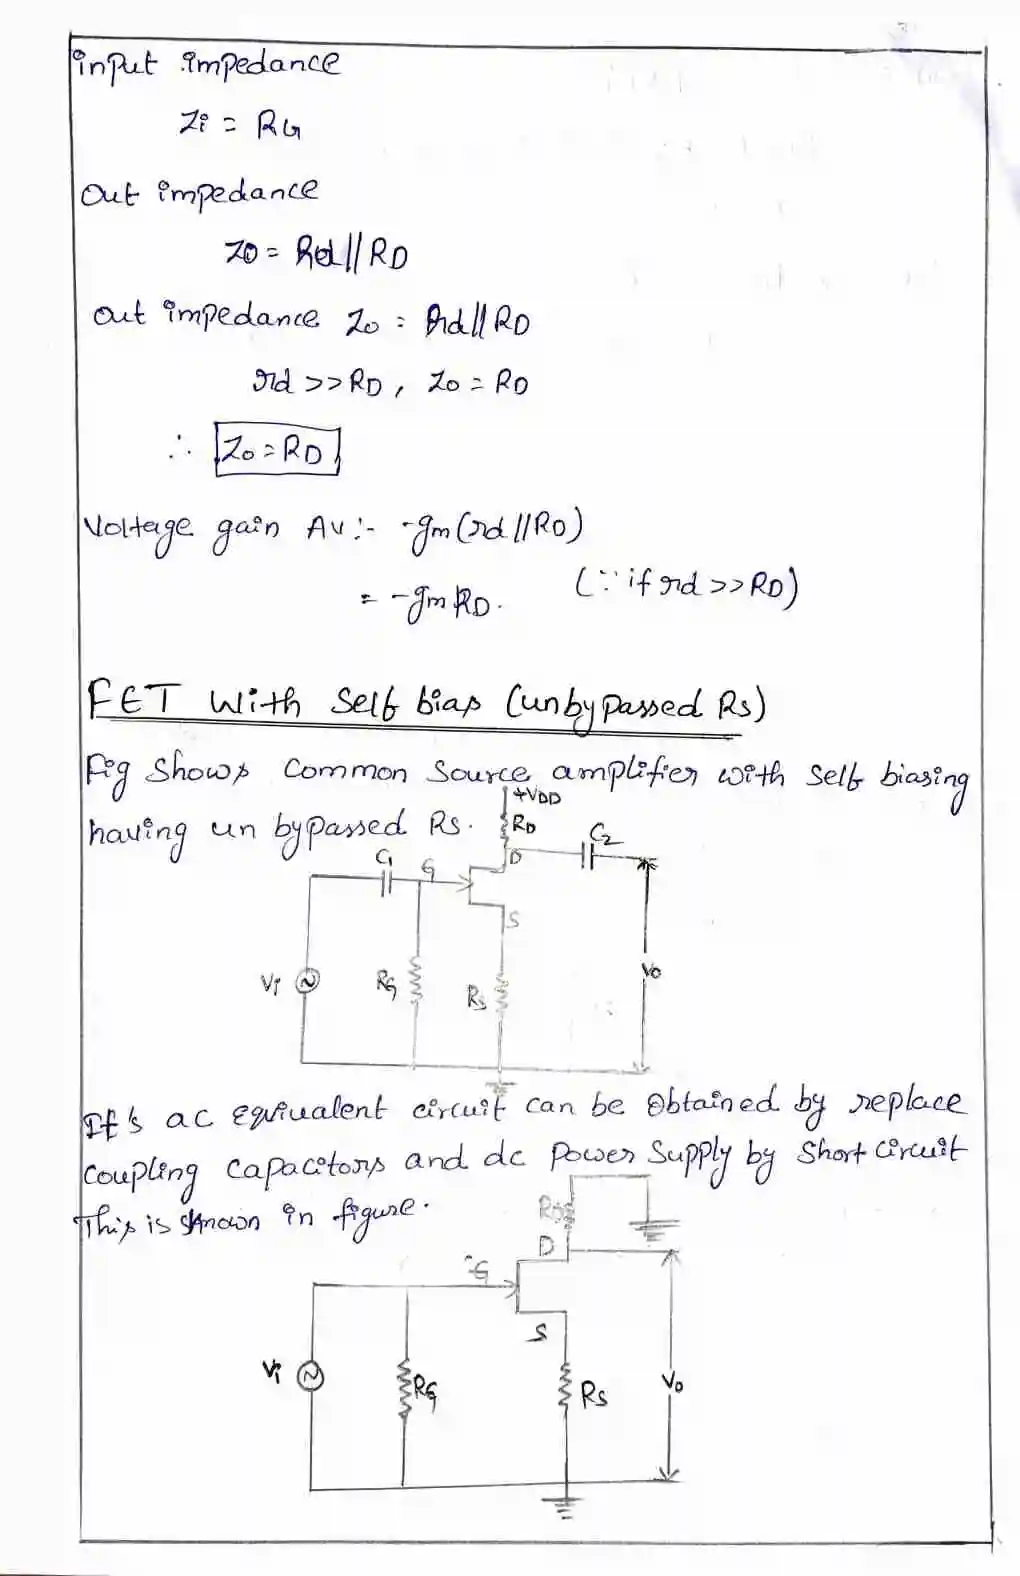 input impedance
Zi = RG
Out impedance
Zo = Rd || RD
Out impedance Zo = rd || RD
rd >> RD, Zo = RD
∴ Zo = RD
Voltage gain Av :- -gm (rd || RD)
= -gm RD. (∵ if rd >> RD)
FET With Self bias (unbypassed Rs)
Fig Shows Common Source amplifier with Self biasing
having un bypassed Rs.
+VDD
RD
C2
D
C1
G
S
Vi
RG
Rs
Vo
It's ac equivalent circuit can be Obtained by replace
Coupling Capacitors and dc Power Supply by Short Circuit
This is shnown in figure.
RD
D
G
S
Vi
RG
Rs
Vo